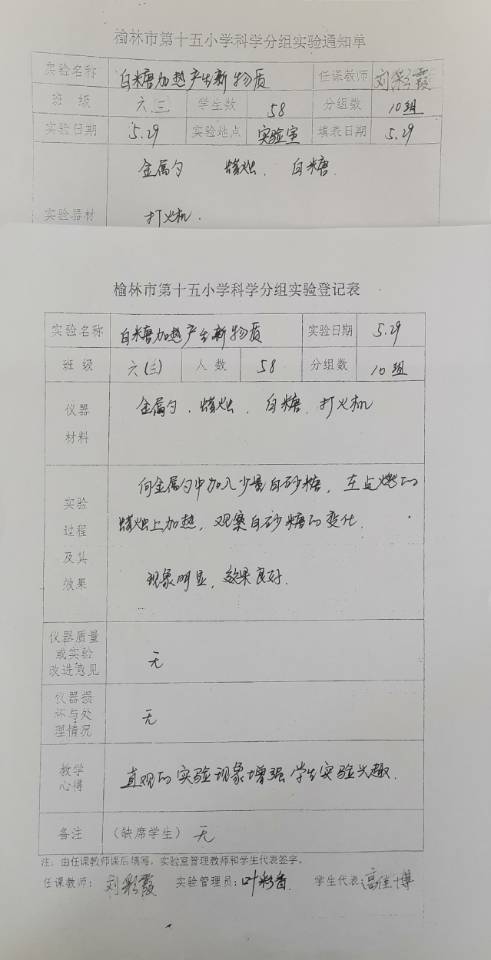 榆林市第十五小学科学分组实验通知单
实验名称 白糖加热产生新物质 任课教师 刘彩霞
班 级 六(三) 学生数 58 分组数 10组
实验日期 5.29 实验地点 实验室 填表日期 5.29
实验器材 金属勺 蜡烛、 白糖、
打火机.
榆林市第十五小学科学分组实验登记表
实验名称 白糖加热产生新物质 实验日期 5.29
班 级 六(三) 人 数 58 分组数 10组
仪器 金属勺、蜡烛、白糖、打火机
材料
向金属勺中加入少量白砂糖,在点燃的
实验
过程 蜡烛上加热,观察白砂糖的变化.
及其
效果 现象明显,效果良好.
仪器质量
或实验 无
改进意见
仪器损
坏与处 无
理情况
教学 直观的实验现象增强学生实验兴趣.
心得
备注 (缺席学生) 无
注:由任课教师课后填写,实验室管理教师和学生代表签字。
任课教师: 刘彩霞 实验管理员:叶彩香 学生代表:高